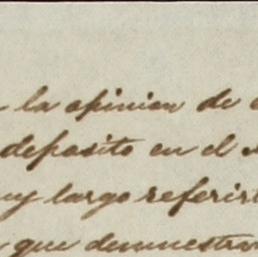 la opinion de
deposito en el
largo referir
que demuestran